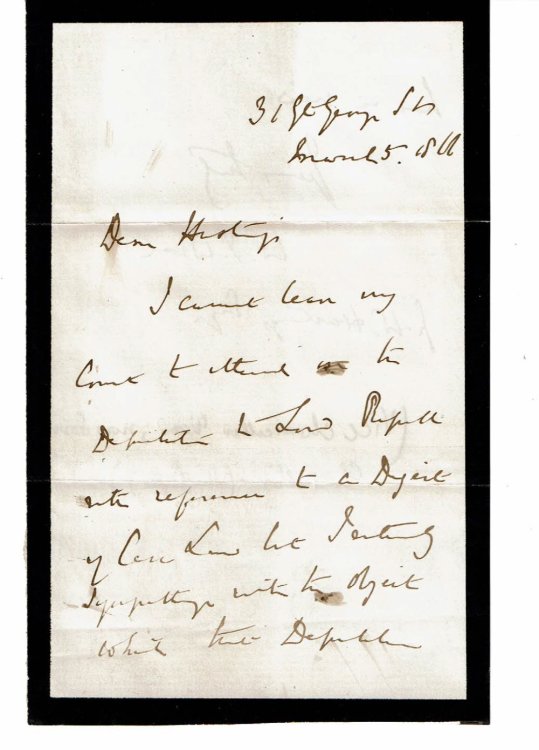 31 Gt George St
March 5. 1866
Dear Hastings
I cannot leave my
Court to attend the
Deputation to Lord Russell
with reference to a Digest
of Case Law but I entirely
sympathize with the object
which that Deputation